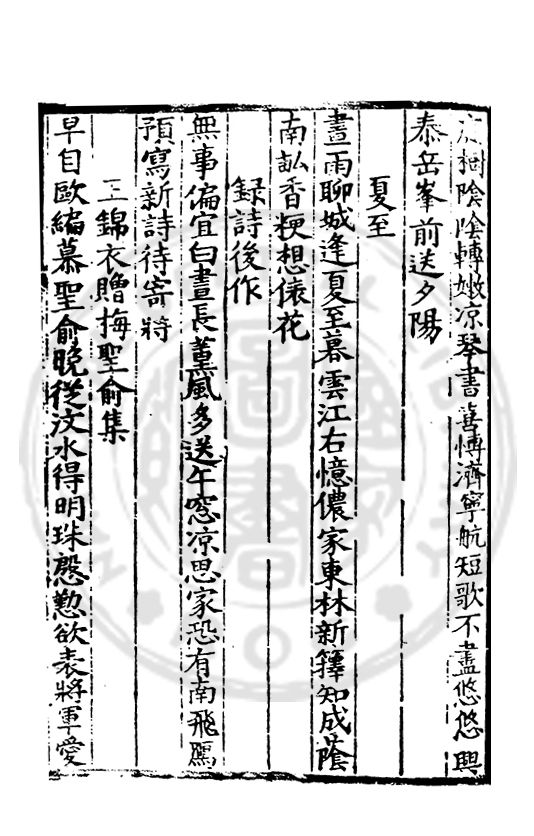 樹陰陰轉嫩凉琴書喜愽濟寧航短歌不盡悠悠興
泰岳峯前送夕陽
夏至
晝雨聊城逢夏至暮雲江右憶儂家東林新籜知成蔭
南畝香粳想𥘵花
録詩後作
無事偏宜白晝長薰風多送午窓凉思家恐有南飛鴈
預寫新詩待寄將
王錦衣贈梅聖俞集
早自歐編慕聖俞晚從汶水得明珠慇懃欲表將軍愛